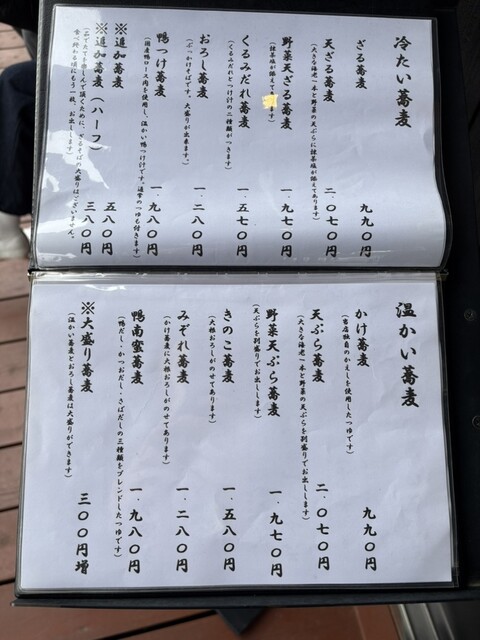 冷たい蕎麦
ざる蕎麦 九九〇円
天ざる蕎麦 二、〇七〇円
(大きな海老一本と野菜の天ぷらに抹茶塩が添えてあります)
野菜天ざる蕎麦 一、九七〇円
(抹茶塩が添えて ます)
くるみだれ蕎麦 一、五七〇円
(くるみだれとつけ汁の二種類がつきます)
おろし蕎麦 一、二八〇円
(ぶっかけそばです。大盛りが出来ます)
鴨つけ蕎麦 一、九八〇円
(国産鴨ロース肉を使用し、温かい鴨つけ汁です。通常のつゆも付きます)
※追加蕎麦 五八〇円
※追加蕎麦(ハーフ) 三八〇円
食べ終わる頃にもう一枚、お出しします)
温かい蕎麦
かけ蕎麦 九九〇円
(当店独自のかえしを使用したつゆです)
天ぷら蕎麦 二、〇七〇円
(大きな海老一本と野菜の天ぷらを別盛でお出しします)
野菜天ぷら蕎麦 一、九七〇円
(天ぷらを別盛りでお出しします)
きのこ蕎麦 一、五八〇円
(大根おろしがのせてあります)
みぞれ蕎麦 一、二八〇円
(かけ蕎麦に大根おろしがのせてあります)
鴨南蛮蕎麦 一、九八〇円
(鴨だし・かつおだし・さばだしの三種類をブレンドしたつゆです)
※大盛り蕎麦 三〇〇円増
(温かい蕎麦とおろし蕎麦は大盛りができます)